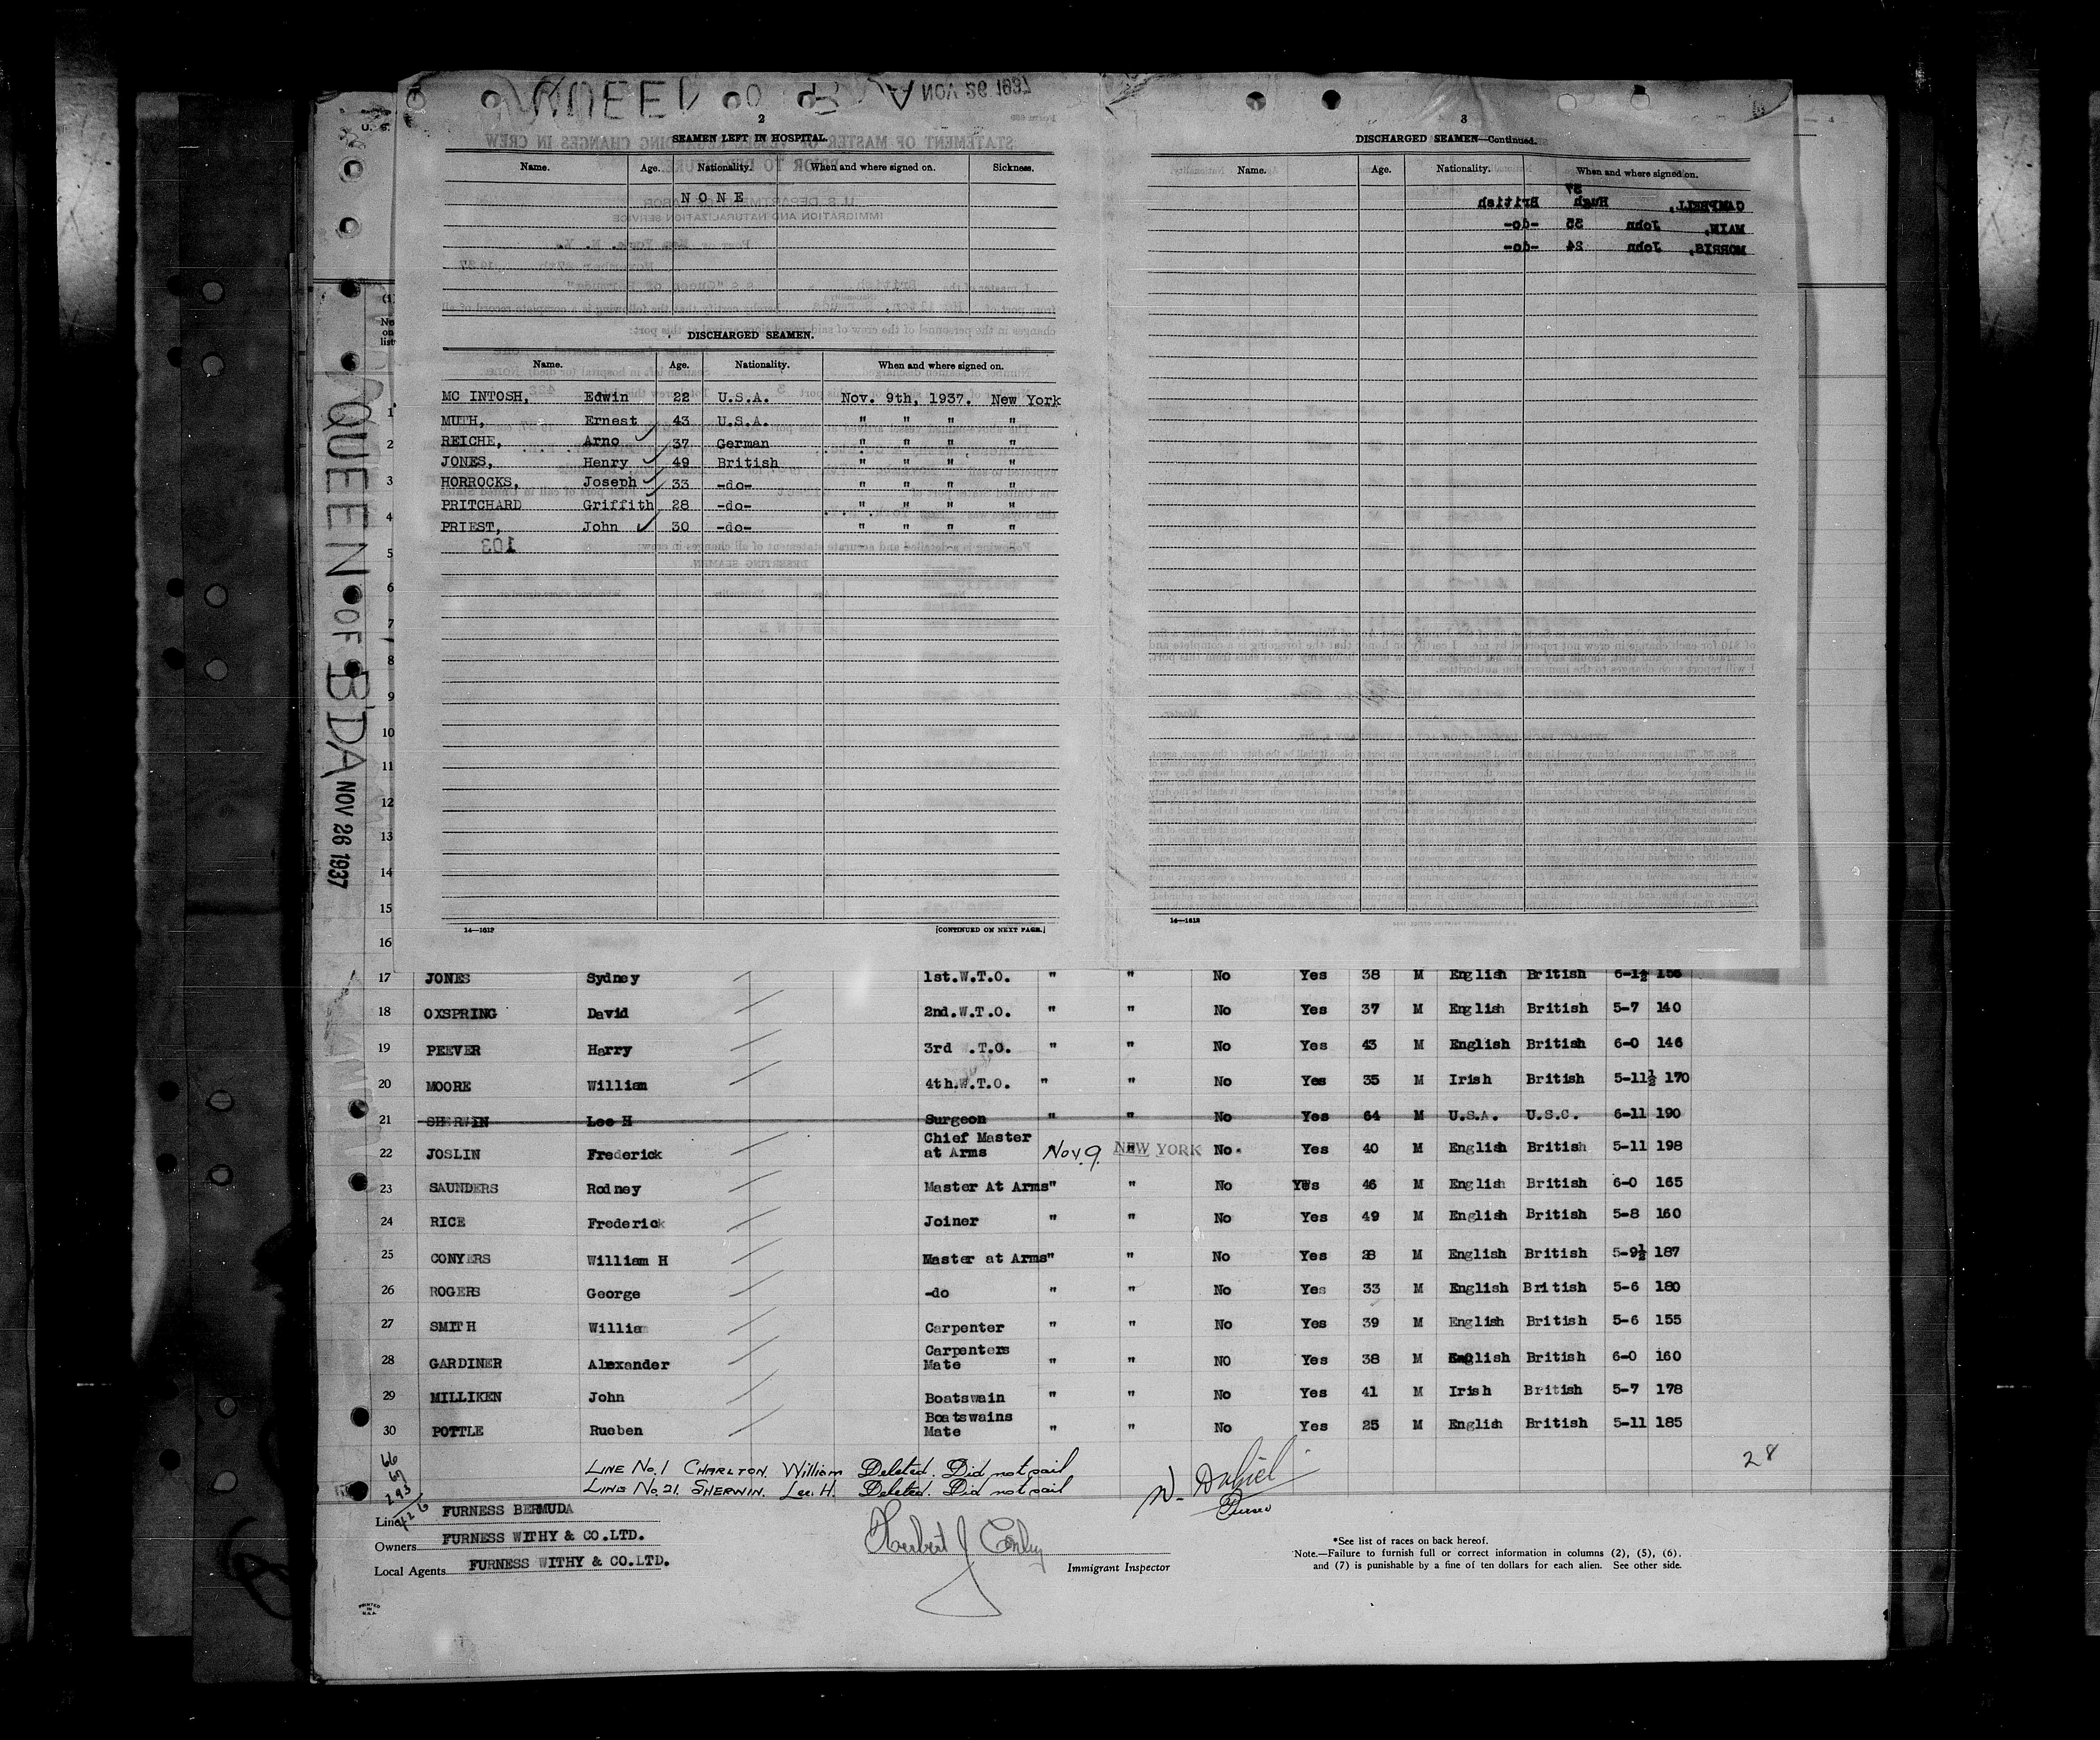 QUEEN OF B'DA NOV 26 1937
2
SEAMEN LEFT IN HOSPITAL
Name. Age. Nationality. When and where signed on. Sickness.
NONE
DISCHARGED SEAMEN.
Name. Age. Nationality. When and where signed on.
MC INTOSH, Edwin 22 U.S.A. Nov. 9th, 1937. New York
MUTH, Ernest 43 U.S.A. " " " "
REICHE, Arno 37 German " " " "
JONES, Henry 49 British " " " "
HORROCKS, Joseph 33 -do- " " " "
PRITCHARD Griffith 28 -do- " " " "
PRIEST, John 30 -do- " " " "
103
14—1612 [CONTINUED ON NEXT PAGE.]
3
DISCHARGED SEAMEN—Continued.
Name. Age. Nationality. When and where signed on.
CAMPBELL, Hugh 37 British
MAIN, John 35 -do-
MORRIS, John 24 -do-
14—1612
QUEEN OF B'DA NOV 26 1937
No on list
1
2
3
4
5
6
7
8
9
10
11
12
13
14
15
16
17 JONES Sydney 1st.W.T.O. " " No Yes 38 M English British 6-1½
18 OXSPRING David 2nd.W.T.O. " " No Yes 37 M English British 5-7 140
19 PEEVER Harry 3rd .T.O. " " No Yes 43 M English British 6-0 146
20 MOORE William 4th.W.T.O. " " No Yes 35 M Irish British 5-11½ 170
21 SHERWIN Lee H Surgeon " " No Yes 64 M U.S.A. U.S.C. 6-11 190
22 JOSLIN Frederick Chief Master at Arms Nov. 9. NEW YORK No. Yes 40 M English British 5-11 198
23 SAUNDERS Rodney Master At Arms " " No Yes 46 M English British 6-0 165
24 RICE Frederick Joiner " " No Yes 49 M English British 5-8 160
25 CONYERS William H Master at Arms " " No Yes 28 M English British 5-9½ 187
26 ROGERS George -do " " No Yes 33 M English British 5-6 180
27 SMITH Willia Carpenter " " No Yes 39 M English British 5-6 155
28 GARDINER Alexander Carpenters Mate " " NO Yes 38 M English British 6-0 160
29 MILLIKEN John Boatswain " " No Yes 41 M Irish British 5-7 178
30 POTTLE Rueben Boatswains Mate " " No Yes 25 M English British 5-11 185
28
LINE No. 1 CHARLTON. William Deleted. Did not sail
LINE No. 21. SHERWIN. Lee. H. Deleted. Did not sail
66
67
293
426
Line FURNESS BERMUDA
Owners FURNESS WITHY & CO.LTD.
Local Agents FURNESS WITHY & CO.LTD.
Purser
Herbert J
Immigrant Inspector
*See list of races on back hereof.
Note.—Failure to furnish full or correct information in columns (2), (5), (6),
and (7) is punishable by a fine of ten dollars for each alien. See other side.
PRINTED IN U.S.A.